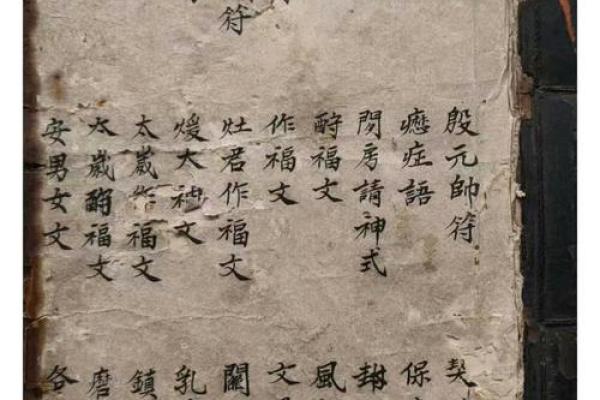 符
殷元帥符
症語
房請神式
酧福文
作福文
灶君作福文
煖大神文
太歲作福文
太歲酧福文
安男女文
契
保
封
風
文
關
乳
鎮
磨
各